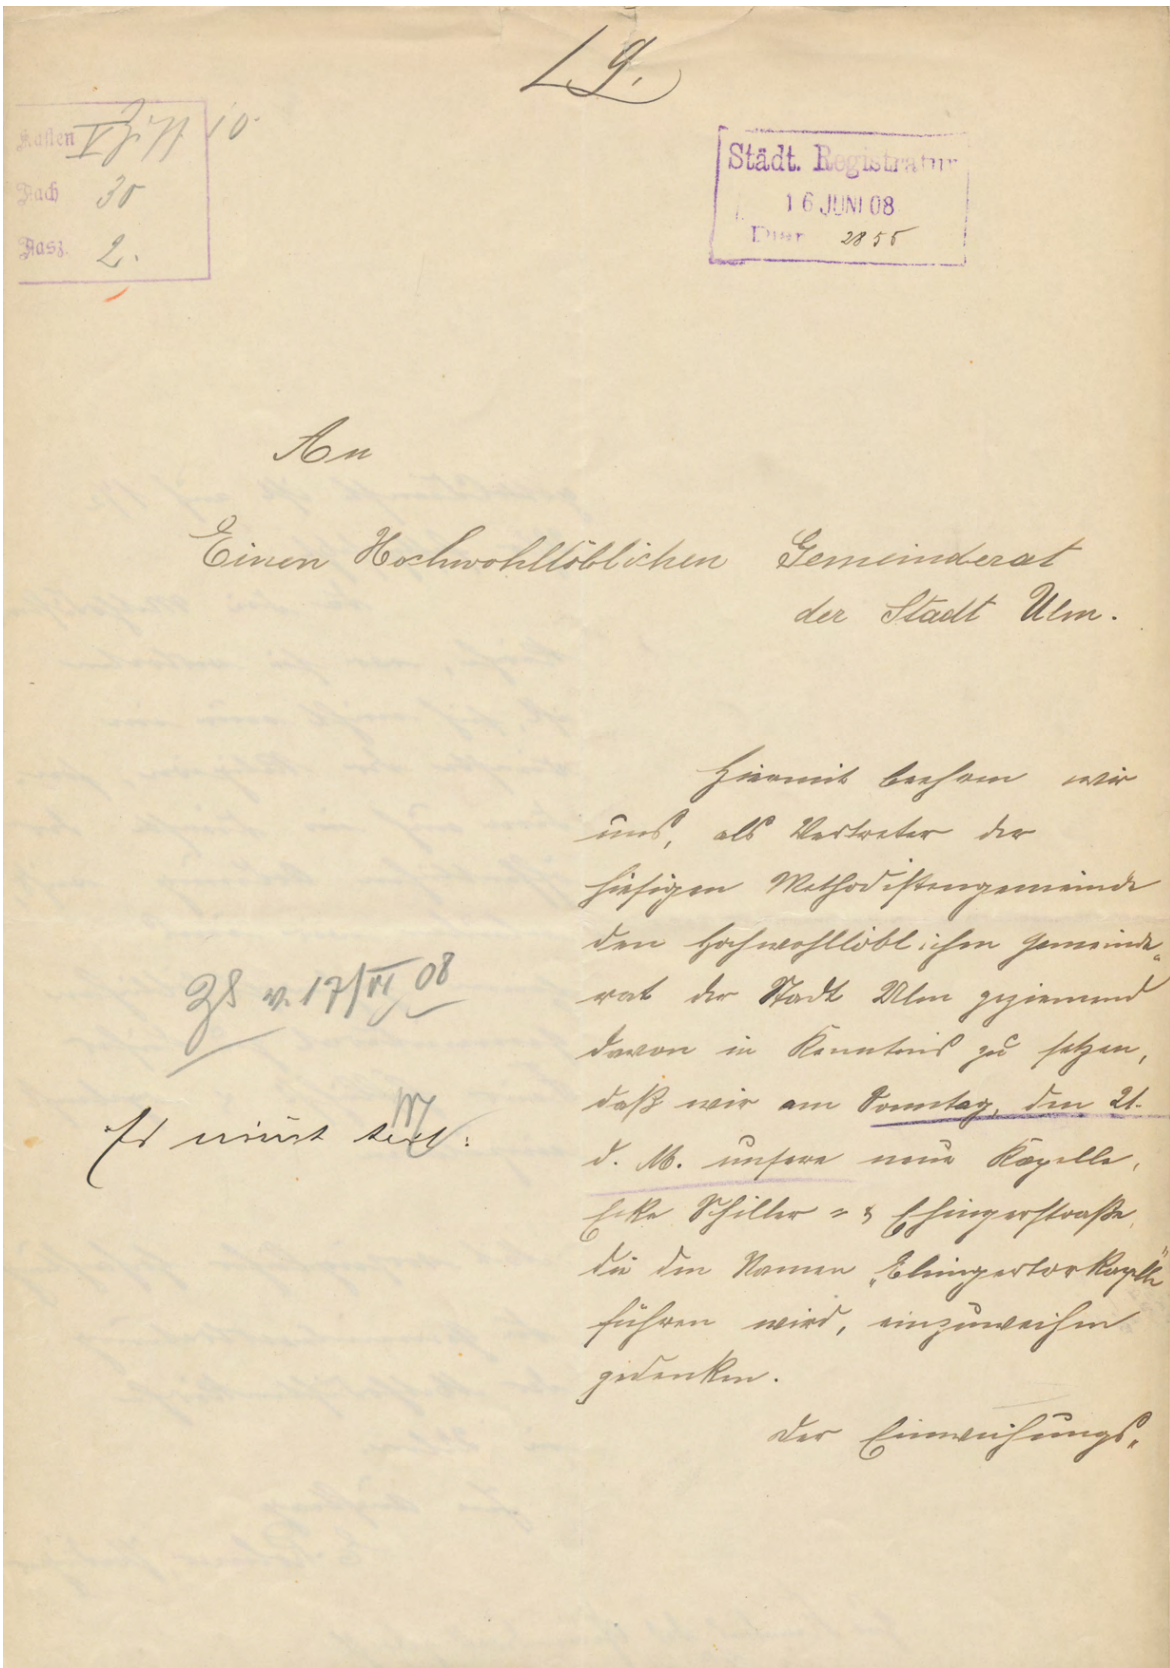 L 9.
Kasten V Ziff 10.
Fach 30
Fasz. 2.
Städt. Registratur
16 JUNI 08
Diar 2855
An
Einen Hochwohllöblichen Gemeinderat
der Stadt Ulm.
Hiermit beehren wir
uns, als Vertreter der
hiesigen Methodistengemeinde
den hochwohllöblichen Gemeinde-
rat der Stadt Ulm geziemend
davon in Kenntnis zu setzen,
daß wir am Sonntag, den 21.
d. M. unsere neue Kapelle,
Ecke Schiller- & Ehingerstraße,
die den Namen „Ehingertorkapelle"
führen wird, einzuweihen
gedenken.
Der Einweihungs-
v. 17/VI 08
Er nimmt teil.